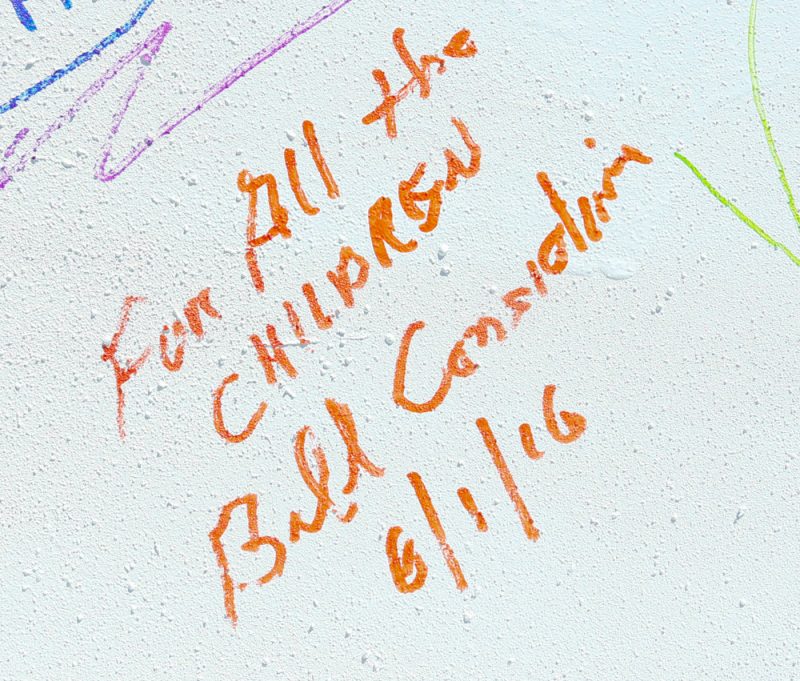 For All the
CHILDREN
Bill Considine
6/1/16